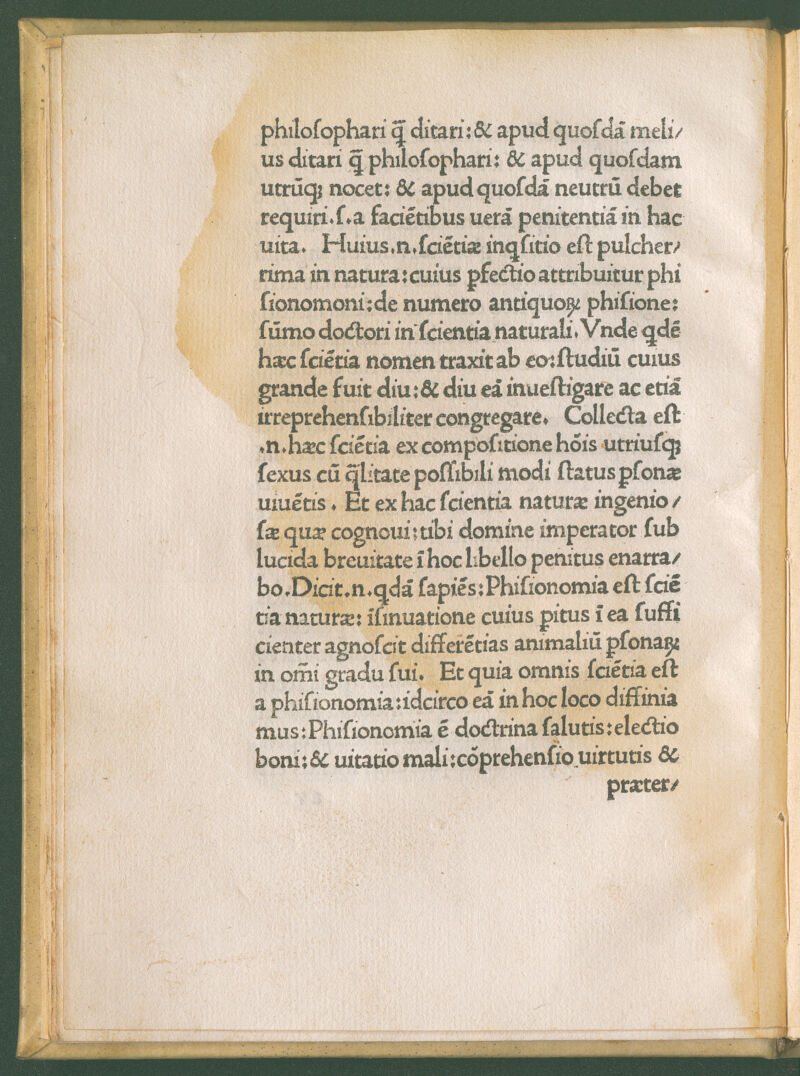 philoſophari q̃ ditari:&amp; apud quoſdã meli/
us ditari q̃ philoſophari: &amp; apud quoſdam
utrũqꝫ nocet: &amp; apud quoſdã neutrũ debet
requiri.ſ.a faciẽtibus uerã penitentiã in hac
uita. Huius.n.ſciẽtiæ inqſitio eſt pulcher/
rima in natura:cuius pfectio attribuitur phi
ſionomoni:de numero antiquoꝝ phiſione:
ſũmo doctori in ſcientia naturali. Vnde qdẽ
hæc ſciẽtia nomen traxit ab eo:ſtudiũ cuius
grande fuit diu:&amp; diu eã inueſtigare ac etiã
irreprehenſibiliter congregare. Collecta eſt
.n.hæc ſciẽtia ex compoſitione hõis utriuſqꝫ
ſexus cũ q̃litate poſſibili modi ſtatus pſonæ
uiuẽtis. Et ex hac ſcientia naturæ ingenio/
ſæ quæ cognoui:tibi domine imperator ſub
lucida breuitate ĩ hoc libello penitus enarra/
bo.Dicit.n.qdã ſapiẽs:Phiſionomia eſt ſciẽ
tia naturæ: ĩſinuatione cuius pitus ĩ ea ſuffi
cienter agnoſcit differẽtias animaliũ pſonaꝝ
in om̃i gradu ſui. Et quia omnis ſciẽtia eſt
a phiſionomia:idcirco eã in hoc loco diffinia
mus:Phiſionomia ẽ doctrina ſalutis:electio
boni:&amp; uitatio mali:cõprehenſio uirtutis &amp;
præter/